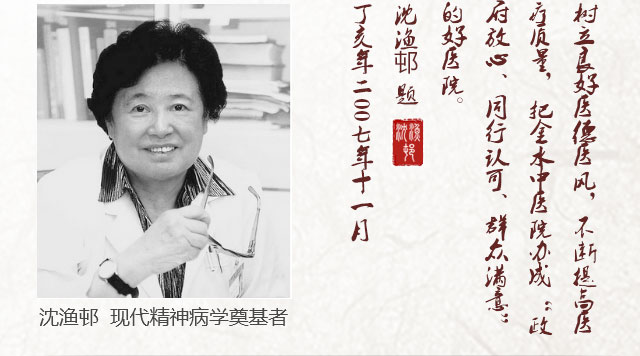 树立良好医德医风，不断提高医
疗质量，把金水中医院办成：政
府放心、同行认可、群众满意；
的好医院。
沈渔邨 题
丁亥年二〇〇七年十一月
沈渔邨
沈渔邨 现代精神病学奠基者